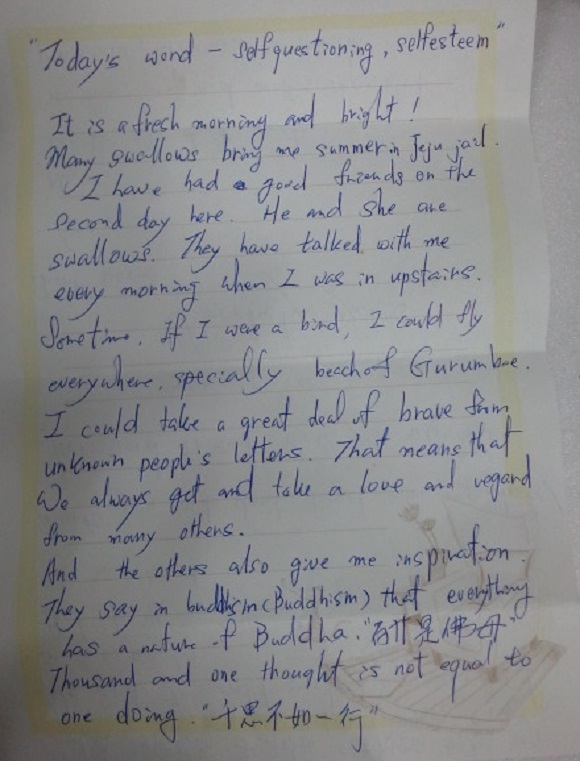 "Today's word - selfquestioning, selfesteem"
It is a fresh morning and bright!
Many swallows bring me summer in Jeju jail.
I have had a good friends on the
second day here. He and she are
swallows. They have talked with me
every morning when I was in upstairs.
Sometime, If I were a bird, I could fly
everywhere, specially beach of Gurumbee.
I could take a great deal of brave from
unknown people's letters. That means that
We always get and take a love and regard
from many others.
And the others also give me inspiration.
They say in buddhism (Buddhism) that everything
has a nature of Buddha. "
Thousand and one thought is not equal to
one doing. "千思不如一行"